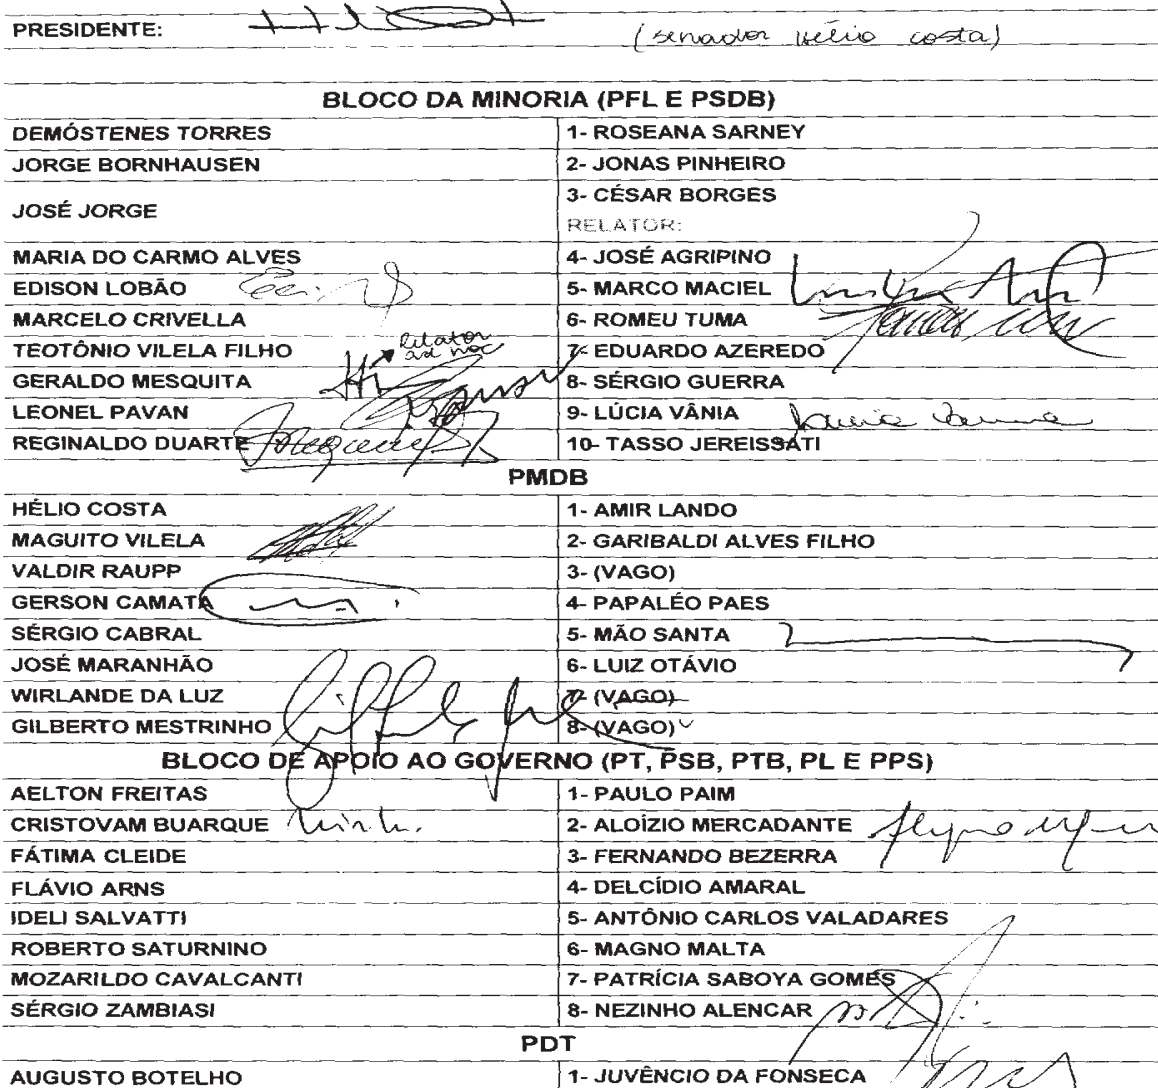 PRESIDENTE: (senador Hélio Costa)
BLOCO DA MINORIA (PFL E PSDB)
DEMÓSTENES TORRES 1- ROSEANA SARNEY
JORGE BORNHAUSEN 2- JONAS PINHEIRO
JOSÉ JORGE 3- CÉSAR BORGES
RELATOR:
MARIA DO CARMO ALVES 4- JOSÉ AGRIPINO
EDISON LOBÃO 5- MARCO MACIEL
MARCELO CRIVELLA 6- ROMEU TUMA
TEOTÔNIO VILELA FILHO relator ad hoc 7- EDUARDO AZEREDO
GERALDO MESQUITA 8- SÉRGIO GUERRA
LEONEL PAVAN 9- LÚCIA VÂNIA
REGINALDO DUARTE 10- TASSO JEREISSATI
PMDB
HÉLIO COSTA 1- AMIR LANDO
MAGUITO VILELA 2- GARIBALDI ALVES FILHO
VALDIR RAUPP 3- (VAGO)
GERSON CAMATA 4- PAPALÉO PAES
SÉRGIO CABRAL 5- MÃO SANTA
JOSÉ MARANHÃO 6- LUIZ OTÁVIO
WIRLANDE DA LUZ 7- (VAGO)
GILBERTO MESTRINHO 8- (VAGO)
BLOCO DE APOIO AO GOVERNO (PT, PSB, PTB, PL E PPS)
AELTON FREITAS 1- PAULO PAIM
CRISTOVAM BUARQUE 2- ALOÍZIO MERCADANTE
FÁTIMA CLEIDE 3- FERNANDO BEZERRA
FLÁVIO ARNS 4- DELCÍDIO AMARAL
IDELI SALVATTI 5- ANTÔNIO CARLOS VALADARES
ROBERTO SATURNINO 6- MAGNO MALTA
MOZARILDO CAVALCANTI 7- PATRÍCIA SABOYA GOMES
SÉRGIO ZAMBIASI 8- NEZINHO ALENCAR
PDT
AUGUSTO BOTELHO 1- JUVÊNCIO DA FONSECA